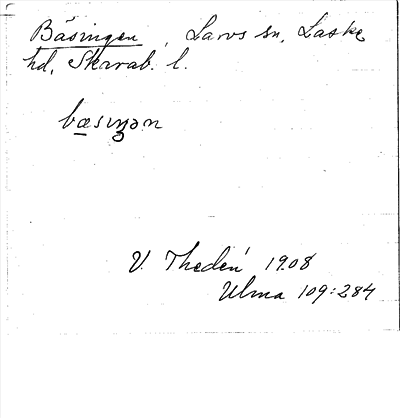 Bäsingen, Larvs sn, Laske
hd, Skarab. l.
bæsıŋən
V. Thedén 1908
Ulma 109:284